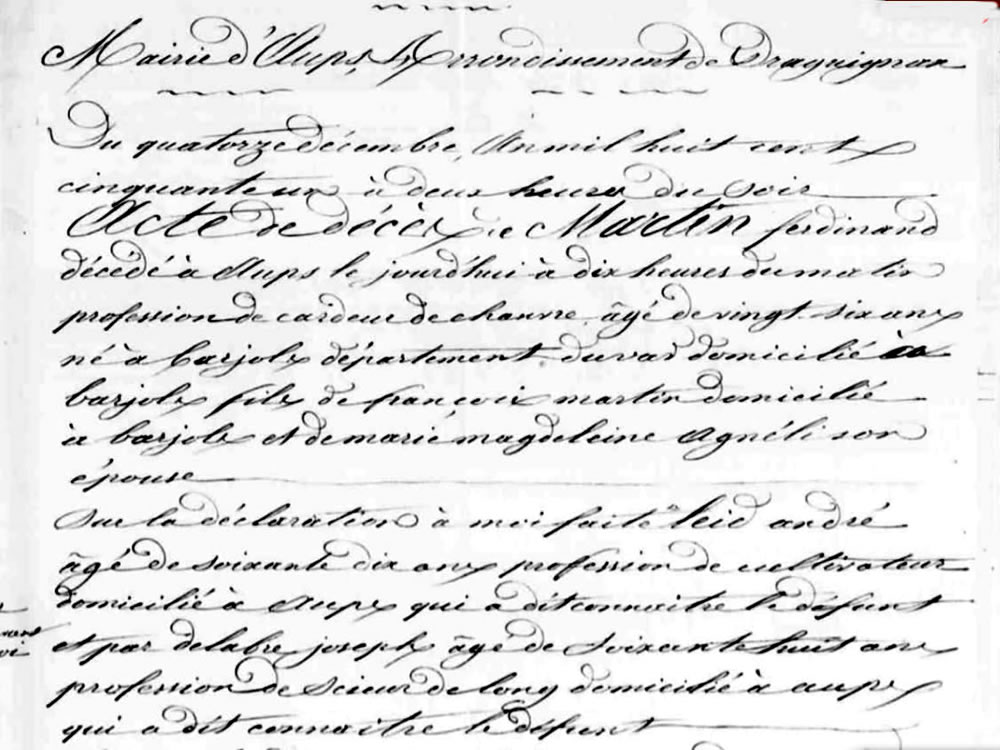 Mairie d'Aups, Arrondissement de Draguignan
Du quatorze décembre, An mil huit cent
cinquante un à deux heures du soir
Acte de décès de Martin ferdinand
décédé à Aups le jourd'hui à dix heures du matin
profession de cardeur de chanvre âgé de vingt-six ans
né à barjols département du var domicilié à
barjols fils de françois martin domicilié
à barjols et de marie magdeleine Agnéli son
épouse
Sur la déclaration à moi faite leid andré
âgé de soixante dix ans profession de cultivateur
domicilié à Aups qui a dit connoitre le défunt
et par delabre joseph âgé de soixante huit ans
profession de scieur de long domicilié à aups
qui a dit connoitre le défunt